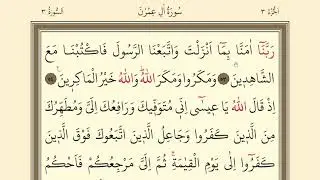 الجزء ٣ سورة اٰل عمرٰن السورة ٣
رَبَّنَٓا اٰمَنَّا بِمَٓا اَنْزَلْتَ وَاتَّبَعْنَا الرَّسُولَ فَاكْتُبْنَا مَعَ
الشَّاهِدٖينَ ﴿٥٣﴾ وَمَكَرُوا وَمَكَرَ اللّٰهُ وَاللّٰهُ خَيْرُ الْمَاكِرٖينَ ﴿٥٤﴾
اِذْ قَالَ اللّٰهُ يَا عٖيسٰٓى اِنّٖى مُتَوَفّٖيكَ وَرَافِعُكَ اِلَىَّ وَمُطَهِّرُكَ
مِنَ الَّذٖينَ كَفَرُوا وَجَاعِلُ الَّذٖينَ اتَّبَعُوكَ فَوْقَ الَّذٖينَ
كَفَرُٓوا اِلٰى يَوْمِ الْقِيٰمَةِ ثُمَّ اِلَىَّ مَرْجِعُكُمْ فَاَحْكُمُ